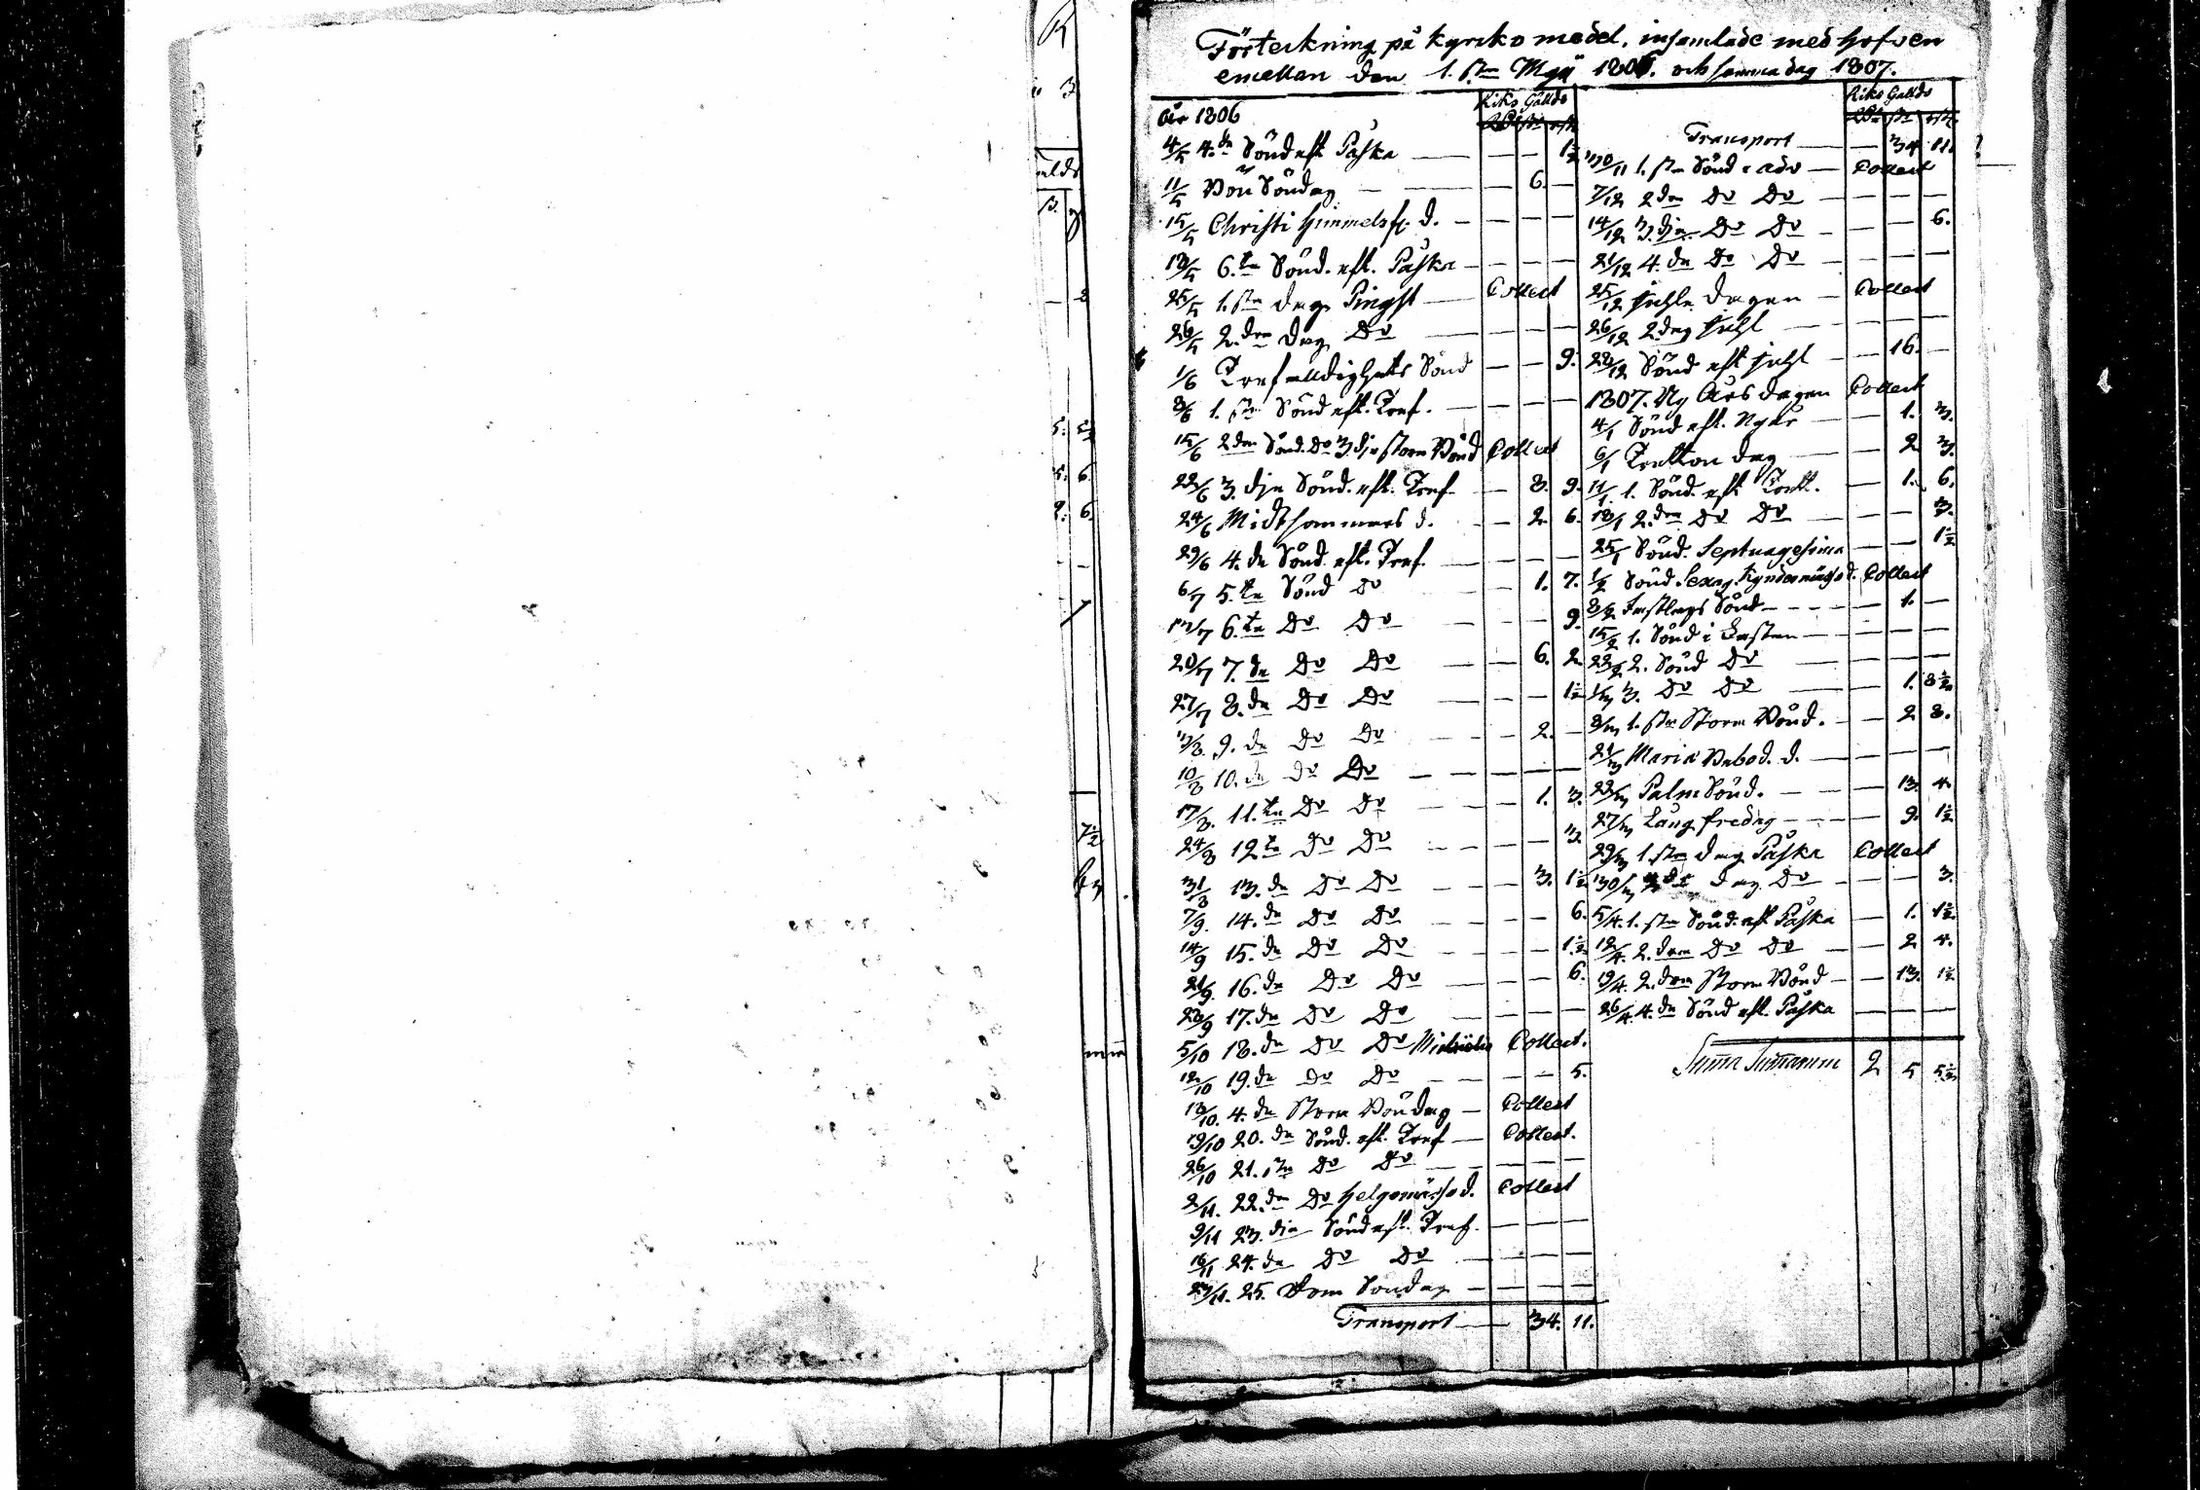 Förteckning på kyrko medel, insamlade med Hofven
emellan den 1.sta Maji 1806. och samma dag 1807.
År 1806
Riks Gällds
4/5 4.de Sönd eft Påska — — — 1½
11/5 Bön Söndag — — 6. —
15/5 Christi Himmelsf. d. — — — —
18/5 6.te Sönd. eft. Påska — — — —
25/5 1.sta dag Pingst — Collect
26/5 2.dra dag Do — — — —
1/6 Trefalldighets Sönd — — 9.
8/6 1.sta Sönd eft. Tref. — — — —
15/6 2dra Sönd. Do 3.dje stora Bönd Collect
22/6 3.dje Sönd. eft. Tref. — 8. 9.
24/6 Midsommars d. — — 2. 6.
29/6 4.de Sönd eft. Tref. — — — —
6/7 5.te Sönd Do — — 1. 7.
13/7 6.te Do Do — — — 9.
20/7 7.de Do Do — — 6. 2.
27/7 8.de Do Do — — — 1½
3/8 9.de Do Do — — 2. —
10/8 10.de Do Do — — — —
17/8. 11.te Do Do — — 1. 3.
24/8 12te Do Do — — — 3.
31/8 13.de Do Do — — 3. 1½
7/9. 14.de Do Do — — — 6.
14/9 15.de Do Do — — — 1½
21/9. 16.de Do Do — — — 6.
28/9 17.de Do Do — — — —
5/10 18.de Do Do Michaelis Collect.
12/10 19.de Do Do — — — 5.
18/10. 4.de Stora Böndag — Collect
19/10 20.de Sönd. eft. Tref — Collect.
26/10 21.sta Do Do — — — —
2/11. 22.dra Do Helgomässo d. Collect
9/11 23.dje Sönd eft. Tref. — — —
16/11 24.de Do Do — — — —
23/11. 25. Dom Söndag — — — —
Transport — 34. 11.
Riks Gällds
Transport — — 34 11.
30/11 1.sta Sönd i Adv — Collect
7/12 2dra Do Do — — — —
14/12 3.dje Do Do — — — 6.
21/12 4.de Do Do — — — —
25/12 Juhle dagen — Collect
26/12 2.dag Juhl — — — —
28/12 Sönd eft Juhl — — 16. —
1807. Ny Års dagen Collect
4/1 Sönd eft. Nyår — — 1. 3.
6/1 Tretton dag — — 2 3.
11/1. 1. Sönd. eft Trett. — 1. 6.
18/1 2.dra Do Do — — — 3.
25/1 Sönd. Septuagesima — — 1½
1/2 Sönd Sexag. Kyndermässo d. Collect
8/2 Fastlags Sönd — — — 1. —
15/2 1. Sönd i Fastan — — — —
22/2 2. Sönd Do — — — —
1/3 3. Do Do — — 1. 8½
8/3 1.sta Stora Bönd. — — 2 8.
21/3 Mariæ Bebod. d. — — — —
22/3 Palm Sönd. — — — 13. 4.
27/3 Lång fredag — — — 9. 1½
29/3 1.sta dag Påska Collect
30/3 dag Do — — — 3.
5/4. 1.sta Sönd. eft Påska — 1. 1½
12/4. 2.dra Do Do — — 2 4.
19/4. 2.dra Stora Bönd — — 13. 1½
26/4. 4.de Sönd eft. Påska — — —
Summa Summarum 2 5 5½